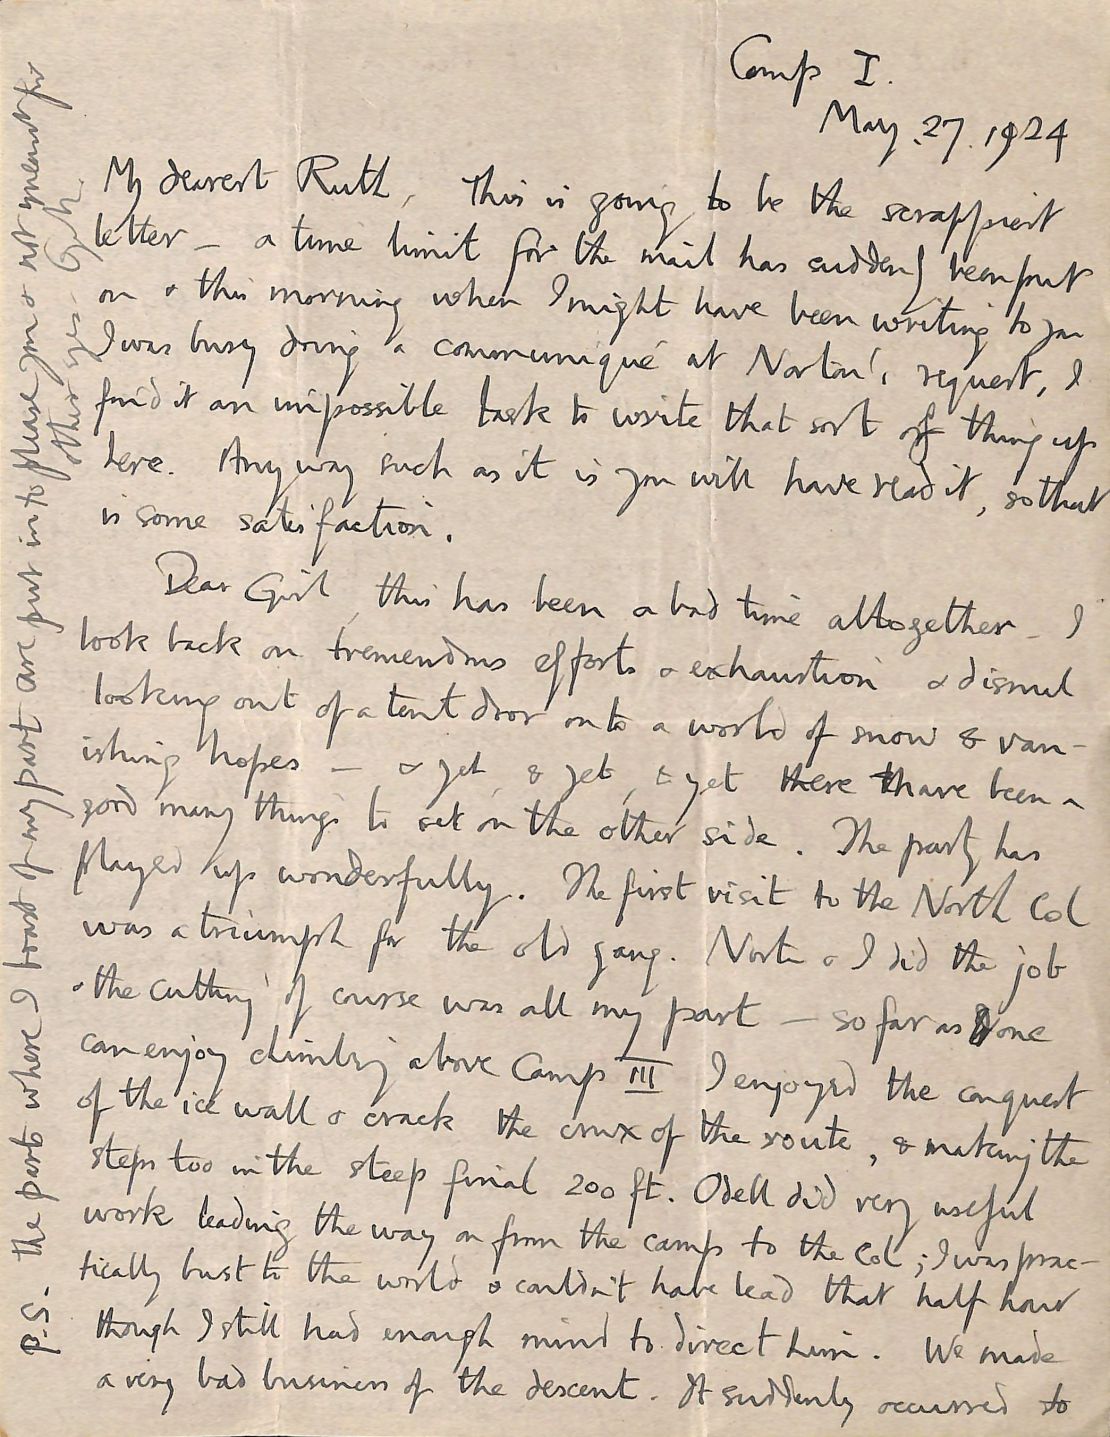 Camp I.
May. 27. 1924
My dearest Ruth, This is going to be the scrappiest
letter – a time limit for the mail has suddenly been put
on & this morning when I might have been writing to you
I was busy doing a communiqué at Norton's request, I
find it an impossible task to write that sort of thing up
here. Any way such as it is you will have read it, so that
is some satisfaction.
Dear Girl, this has been a bad time altogether – I
look back on tremendous efforts & exhaustion & dismal
looking out of a tent door on to a world of snow & van-
ishing hopes – & yet, & yet, & yet there have been a
good many things to set on the other side. The party has
played up wonderfully. The first visit to the North Col
was a triumph for the old gang. Norton & I did the job
& the cutting of course was all my part – so far as one
can enjoy climbing above Camp III I enjoyed the conquest
of the ice wall & crack the crux of the route, & making the
steps too in the steep final 200 ft. Odell did very useful
work leading the way on from the camp to the Col; I was prac-
tically bust to the world & couldn't have lead that half hour
though I still had enough mind to direct him. We made
a very bad business of the descent. It suddenly occurred to
P.S. The parts where I boast of my part are put in to please you & not meant for
other eyes – G.L.M.